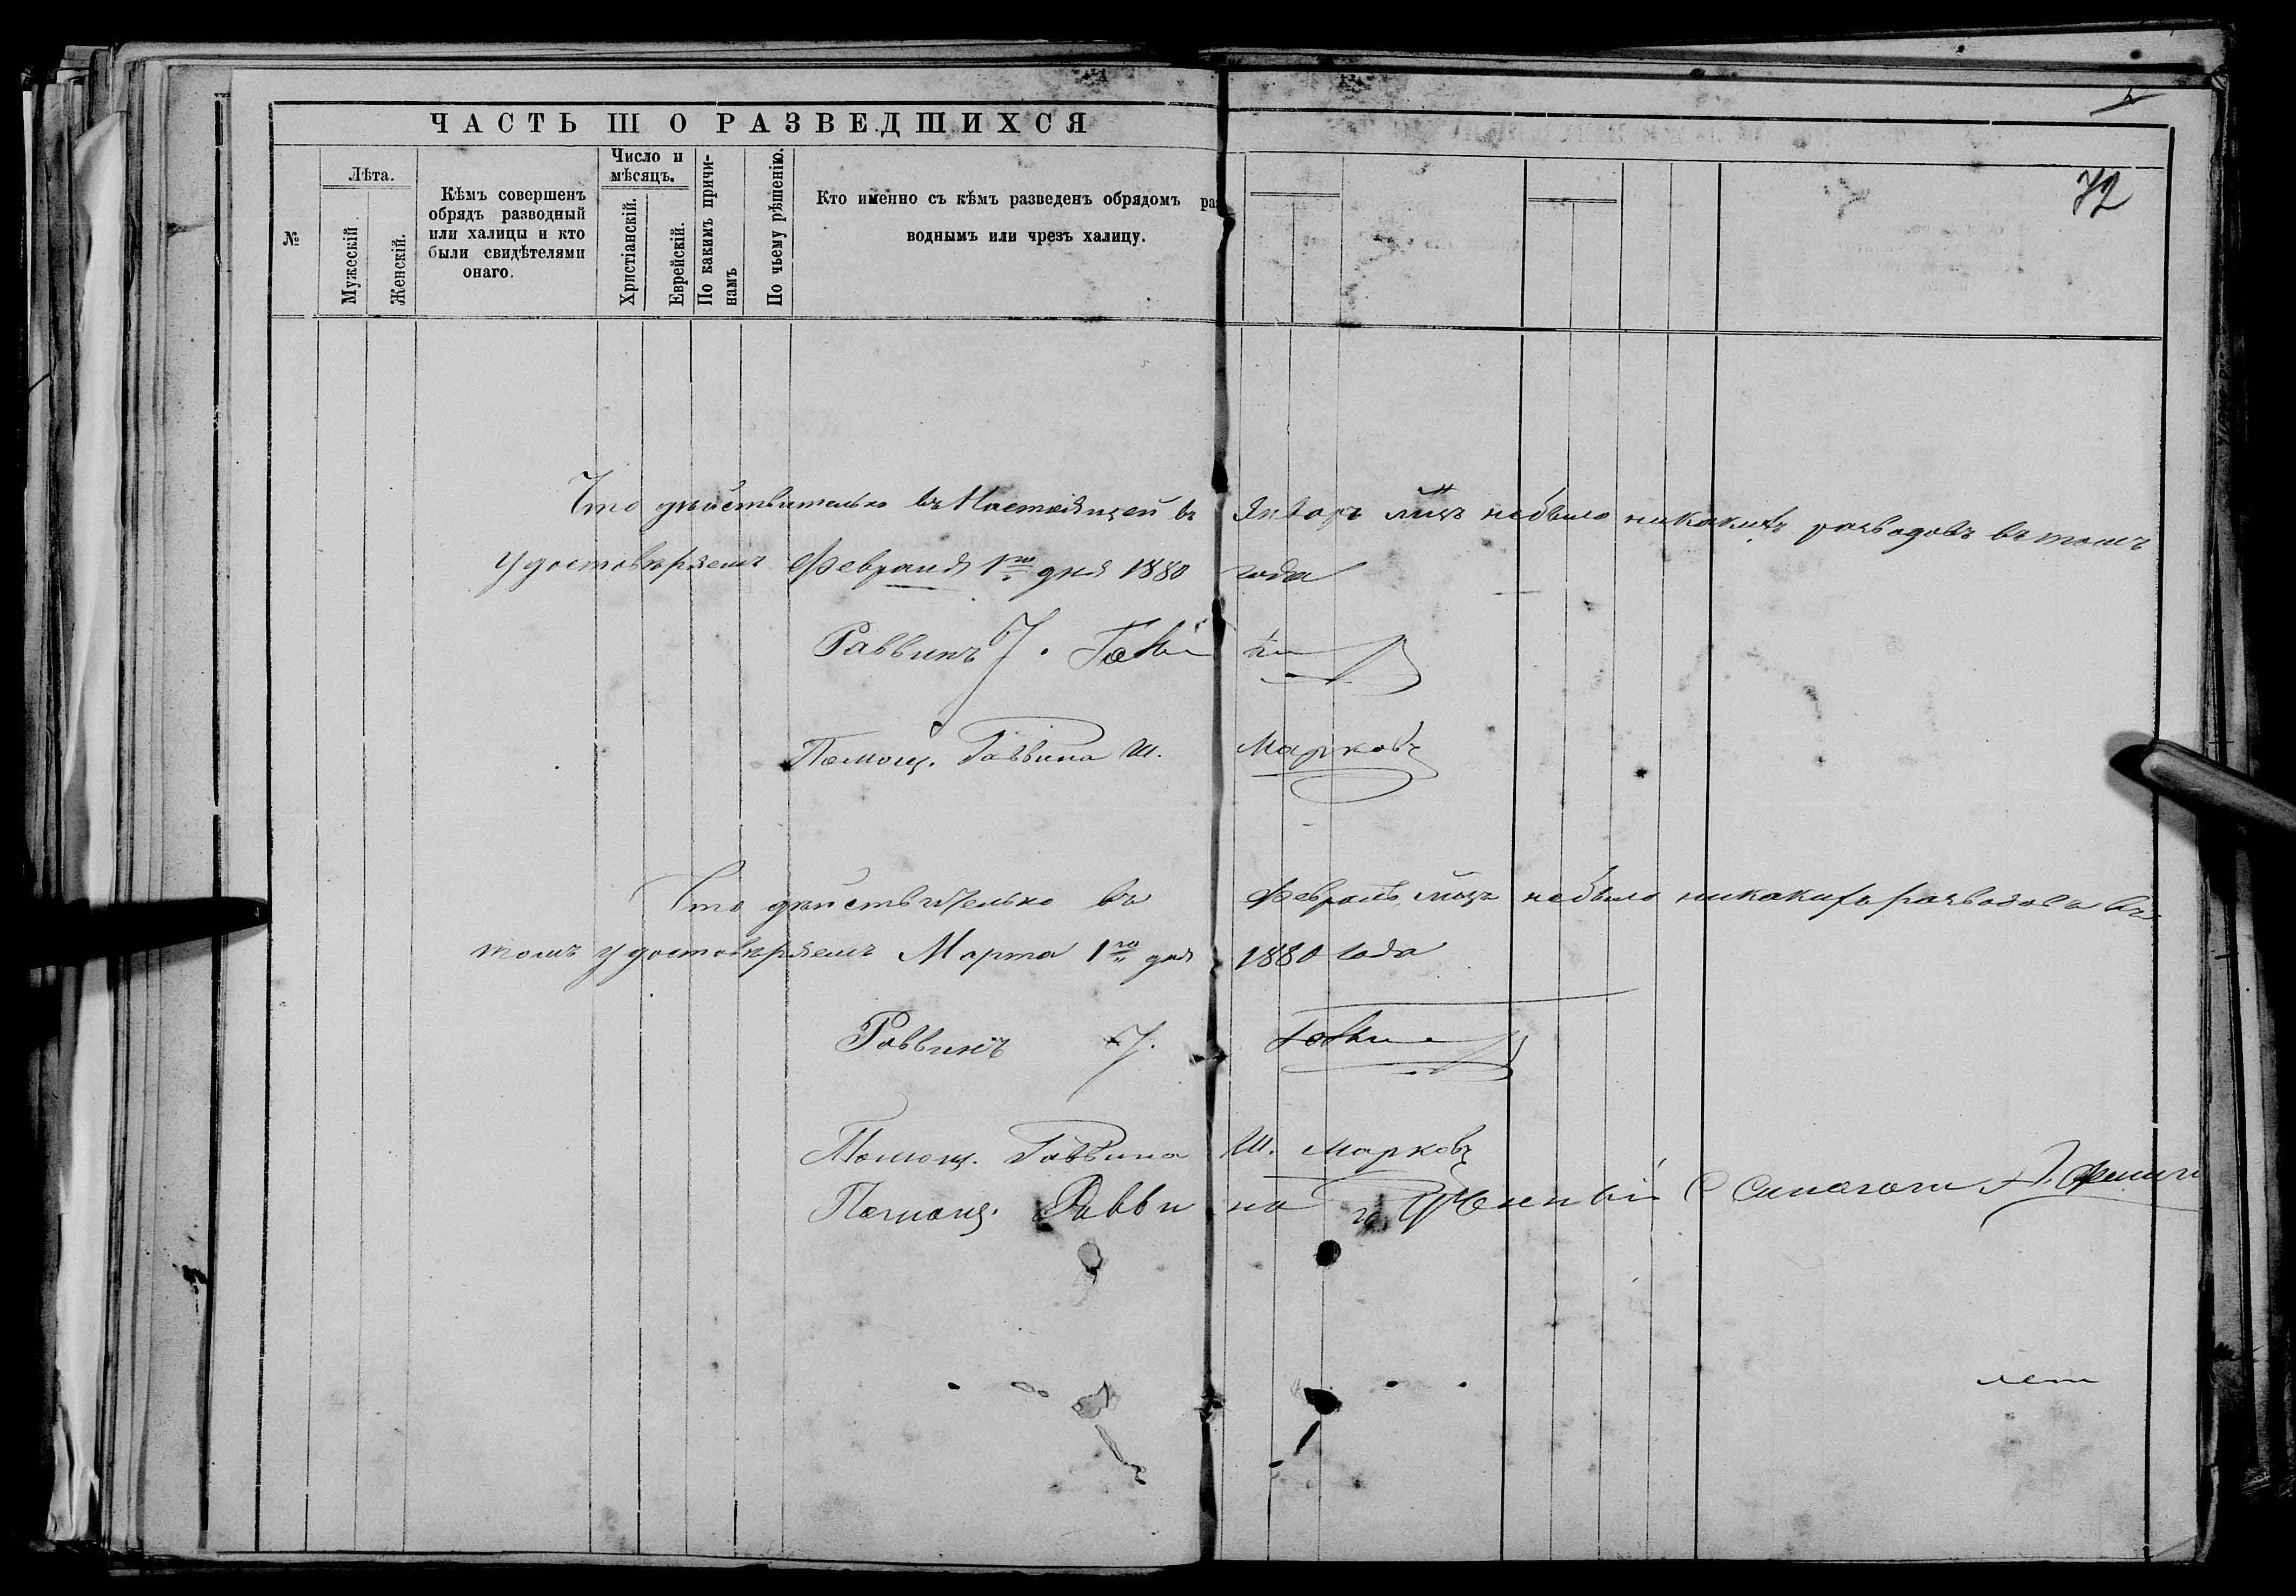 ЧАСТЬ III О РАЗВЕДШИХСЯ
72
№
Лѣта.
Мужескій
Женскій.
Кѣмъ совершенъ
обрядъ разводный
или халицы и кто
были свидѣтелями
онаго.
Число и
мѣсяцъ.
Христіанскій.
Еврейскій.
По какимъ причи-
намъ
По чьему рѣшенію.
Кто именно съ кѣмъ разведенъ обрядомъ раз
воднымъ или чрезъ халицу.
Что дѣйствительно въ Настоящей въ Январѣ мцѣ небыло никакихъ разводовъ въ томъ
удостовѣряемъ Февраля 1го дня 1880 года
Раввинъ
Помощ. Раввина Ш. Марковъ
Что дѣйствительно въ Февралѣ мцѣ небыло никакихъ разводовъ въ
томъ удостовѣряемъ Марта 1го дня 1880 года
Раввинъ
Помощ. Раввина Ш. Марковъ
Помощ. Раввина Ученый Синагоги